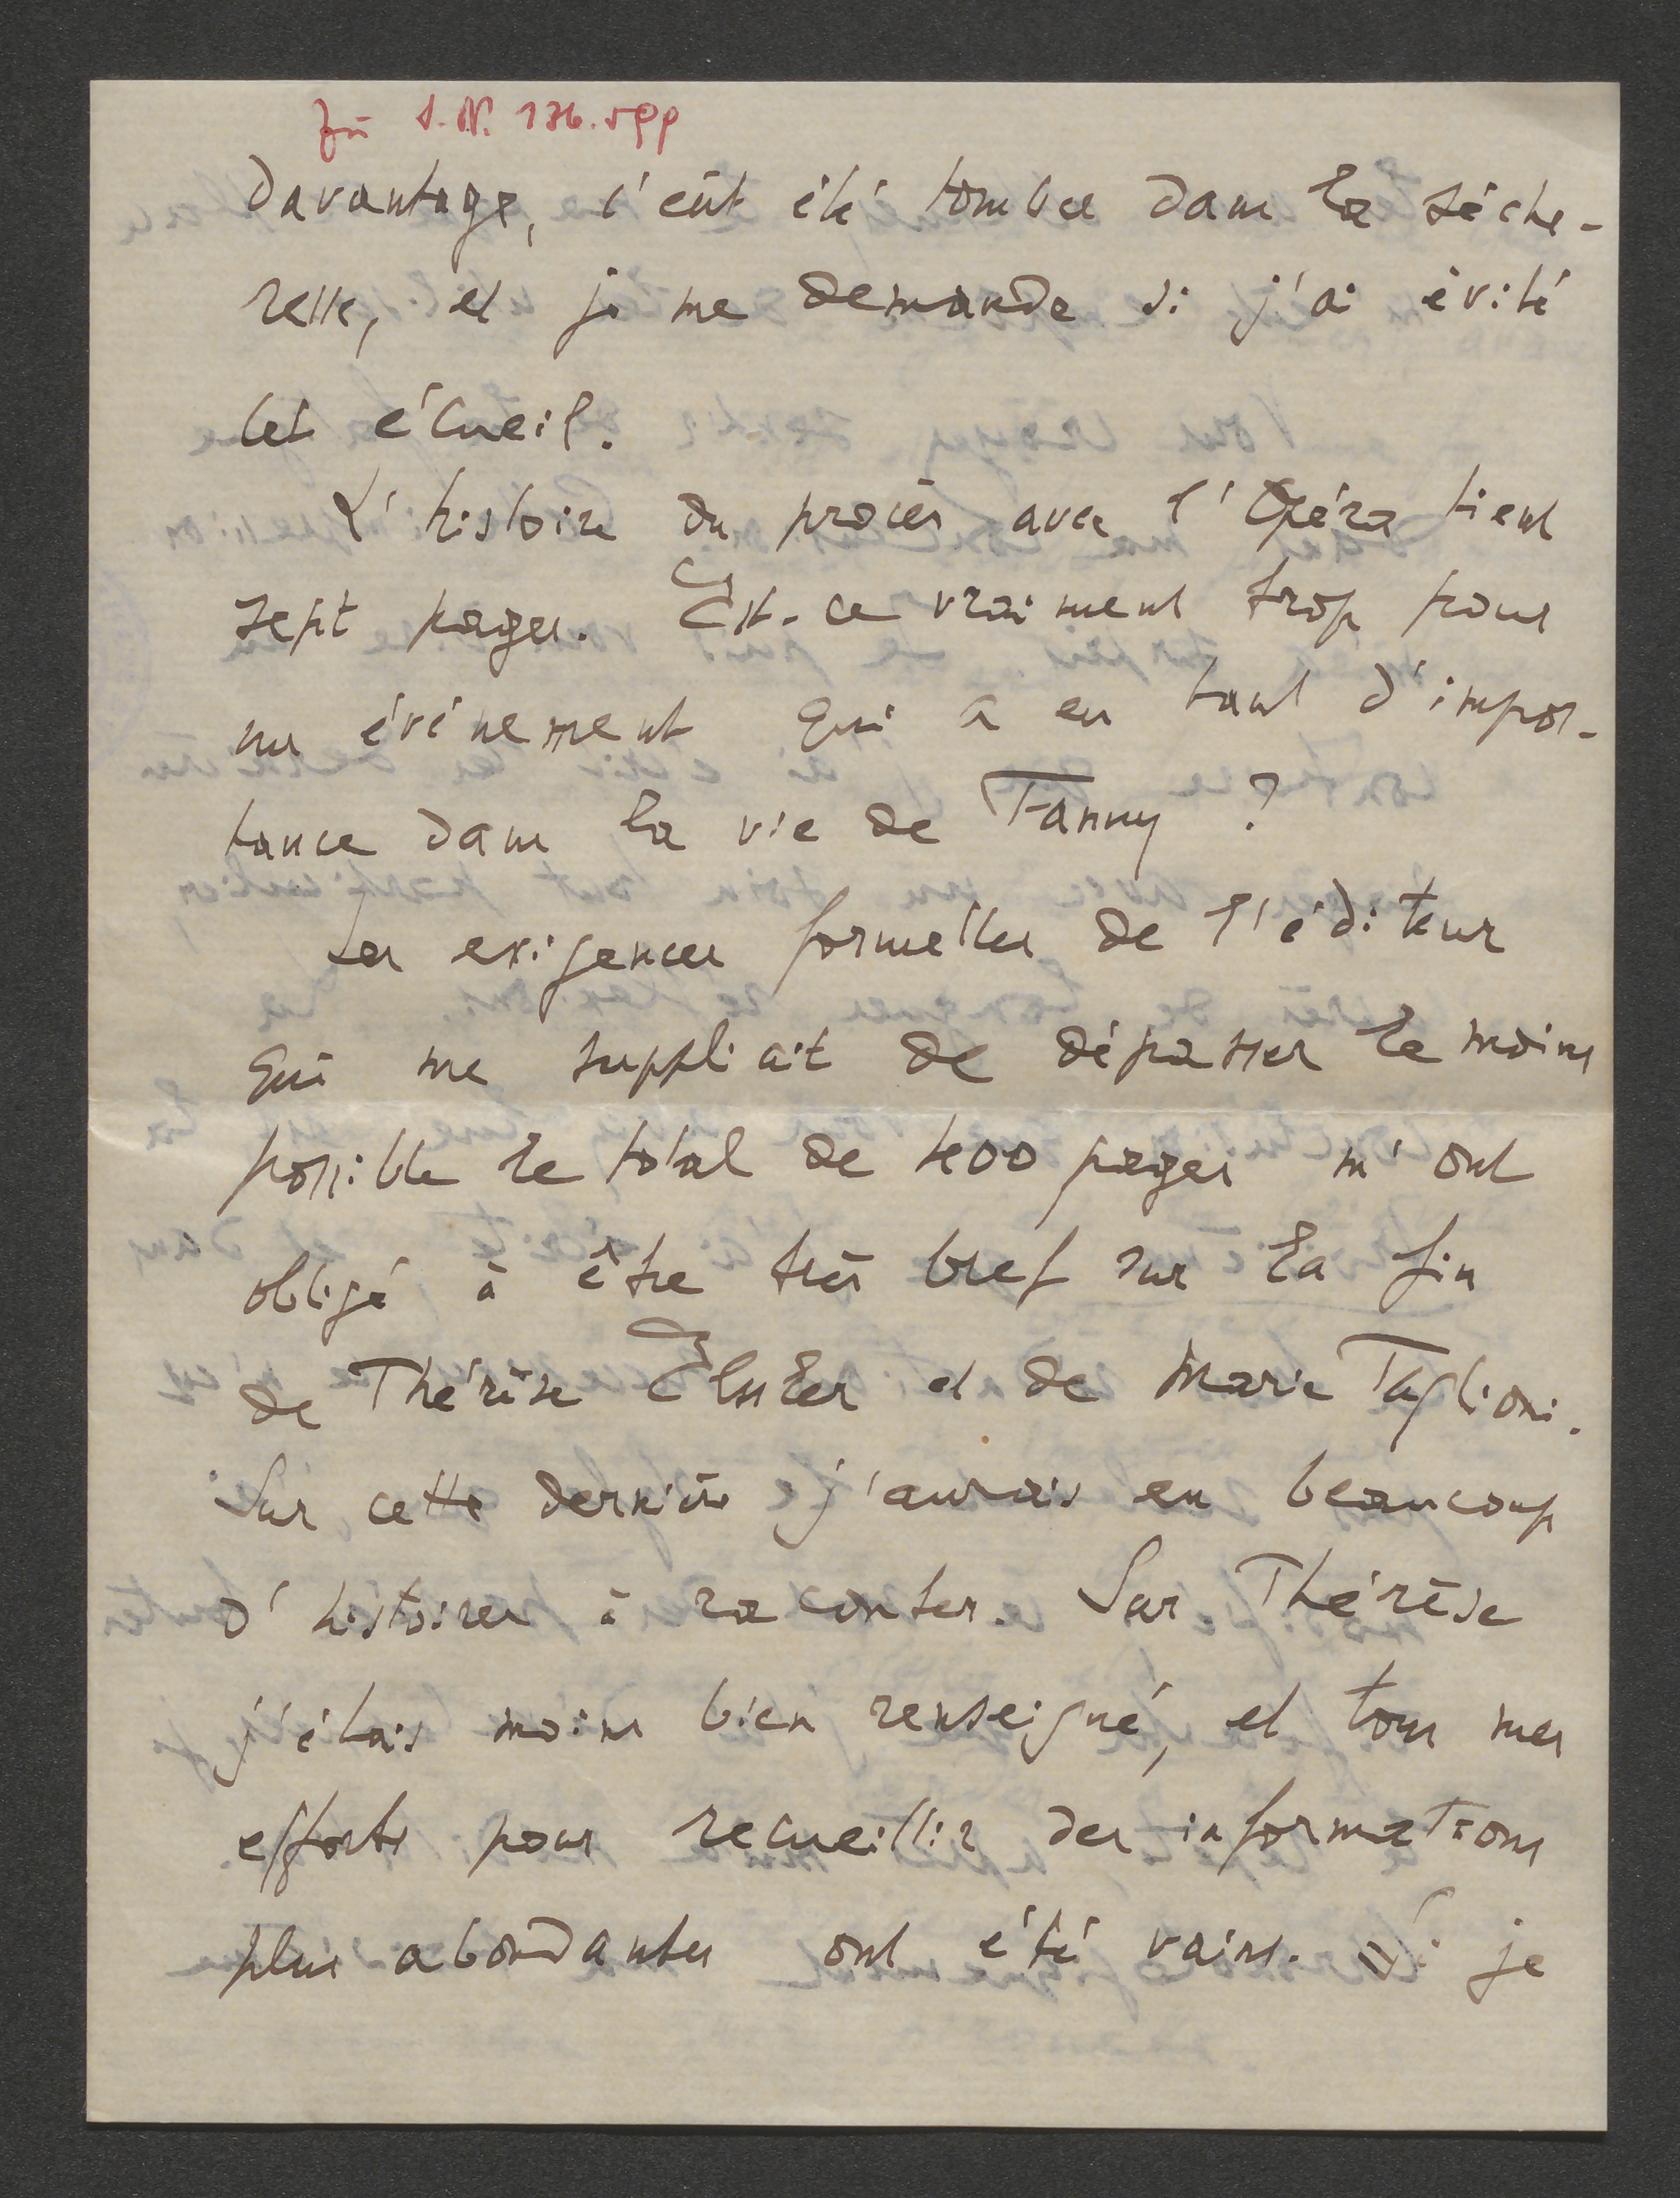 zu I.N. 136.599
davantage, c'eût été tomber dans la séche-
resse, et je me demande si j'ai évité
cet écueil.
L'histoire du procès avec l'Opéra tient
sept pages. Est-ce vraiment trop pour
un événement qui a eu tant d'impor-
tance dans la vie de Fanny ?
Les exigences formelles de l'éditeur
qui me suppliait de dépasser le moins
possible le total de 400 pages m'ont
obligé à être très bref sur la fin
de Thérèse Elssler et de Marie Taglioni.
Sur cette dernière j'aurais eu beaucoup
d'histoires à raconter. Sur Thérèse
j'étais moins bien renseigné, et tous mes
efforts pour recueillir des informations
plus abondantes ont été vains. Si je